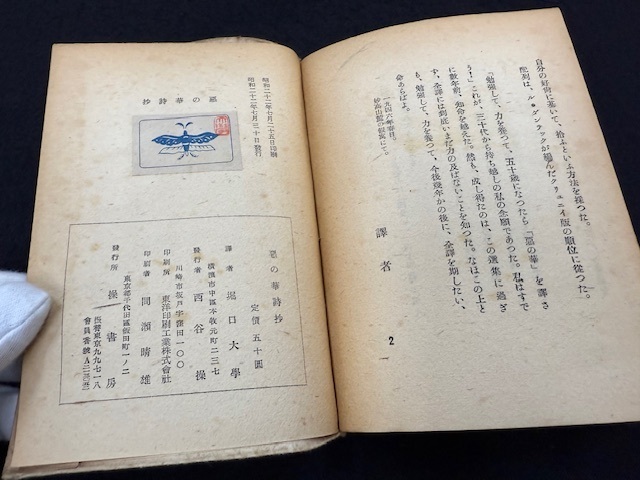 自分の好尚に基いて、拾ふといふ方法を採つた。
配列は、ル・ダンテックが編んだクリュニイ版の順位に從つた。
「勉强して、力を養つて、五十歲になつたら「惡の華」を譯さ
う!」これが、三十代から持ち越しの私の念願であつた。私はすで
に數年前、知命を越えた。然も、成し得たのは、この選集に過ぎ
ず、全譯には到底いまだ力の及ばないことを知つた。なほこの上と
も、勉强して、力を養つて、今後幾年かの後に、全譯を期したい、
命あらばよ。
一九四六年春日
妙高山麓の假寓にて。
譯者
2
昭和二十二年七月二十五日印刷
昭和二十二年七月三十日發行
惡の華詩抄
惡の華詩抄
定價五十圓
譯者 堀口大學
橫濱市中區本牧元町二三七
發行者 西谷操
川崎市坂戶字窪田一〇〇
印刷所 東洋印刷工業株式會社
印刷者 間瀨晴雄
東京都千代田區飯田町一ノ二
發行所 操書房
振替東京九九七一八